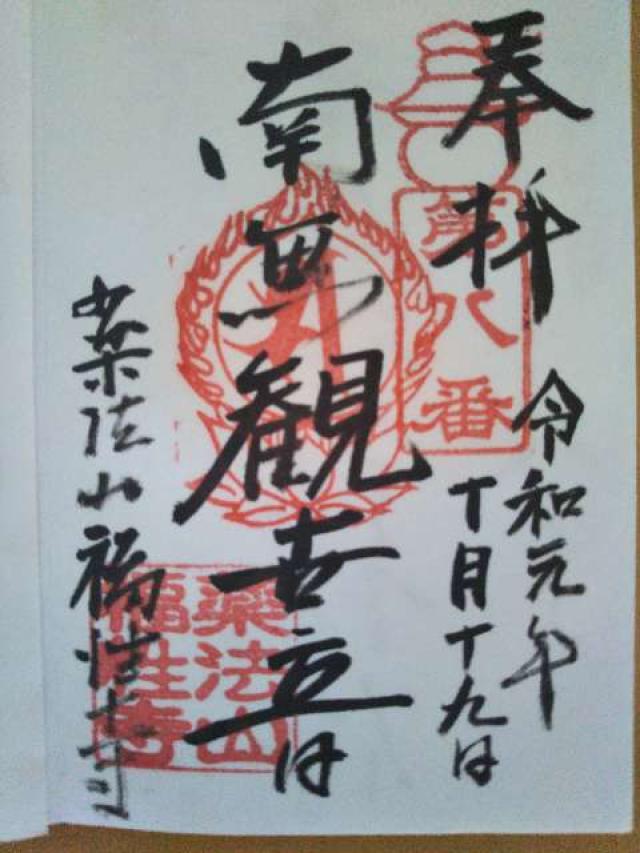 奉拝
第八番
令和元年
十月十九日
南無観世音
薬法山福性寺
薬法山
福性寺